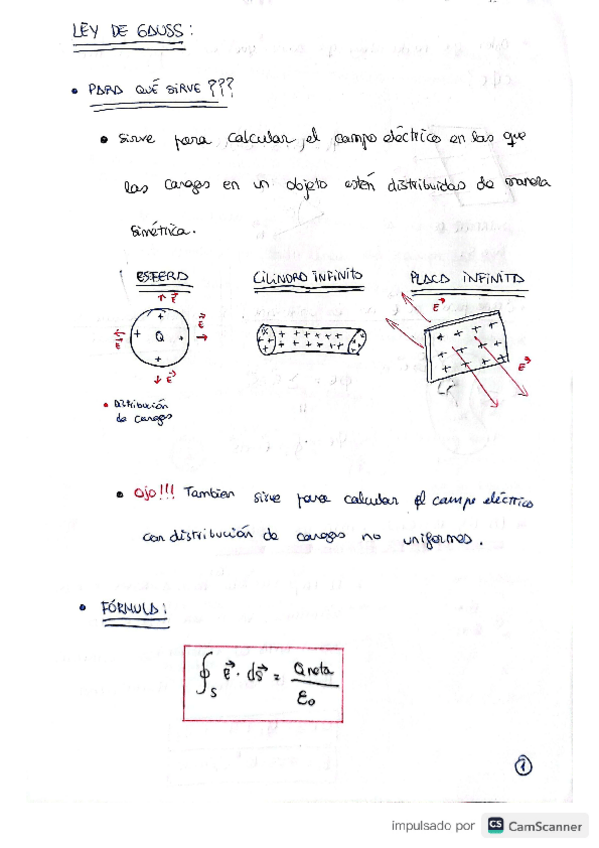 LEY DE GAUSS:
• PARA QUÉ SIRVE???
• Sirve para calcular el campo eléctrico en las que
las cargas en un objeto estén distribuidas de manera
simétrica.
ESFERA CILINDRO INFINITO PLACA INFINITA
E⃗ E⃗ E⃗ E⃗ Q
+ + + +
E⃗ E⃗
• Distribución
de cargas
• Ojo!!! Tambien sirve para calcular el campo eléctrico
con distribución de cargas no uniformes.
• FÓRMULA:
∮s E⃗ · ds⃗ = Qneta / ε₀
1
impulsado por CS CamScanner